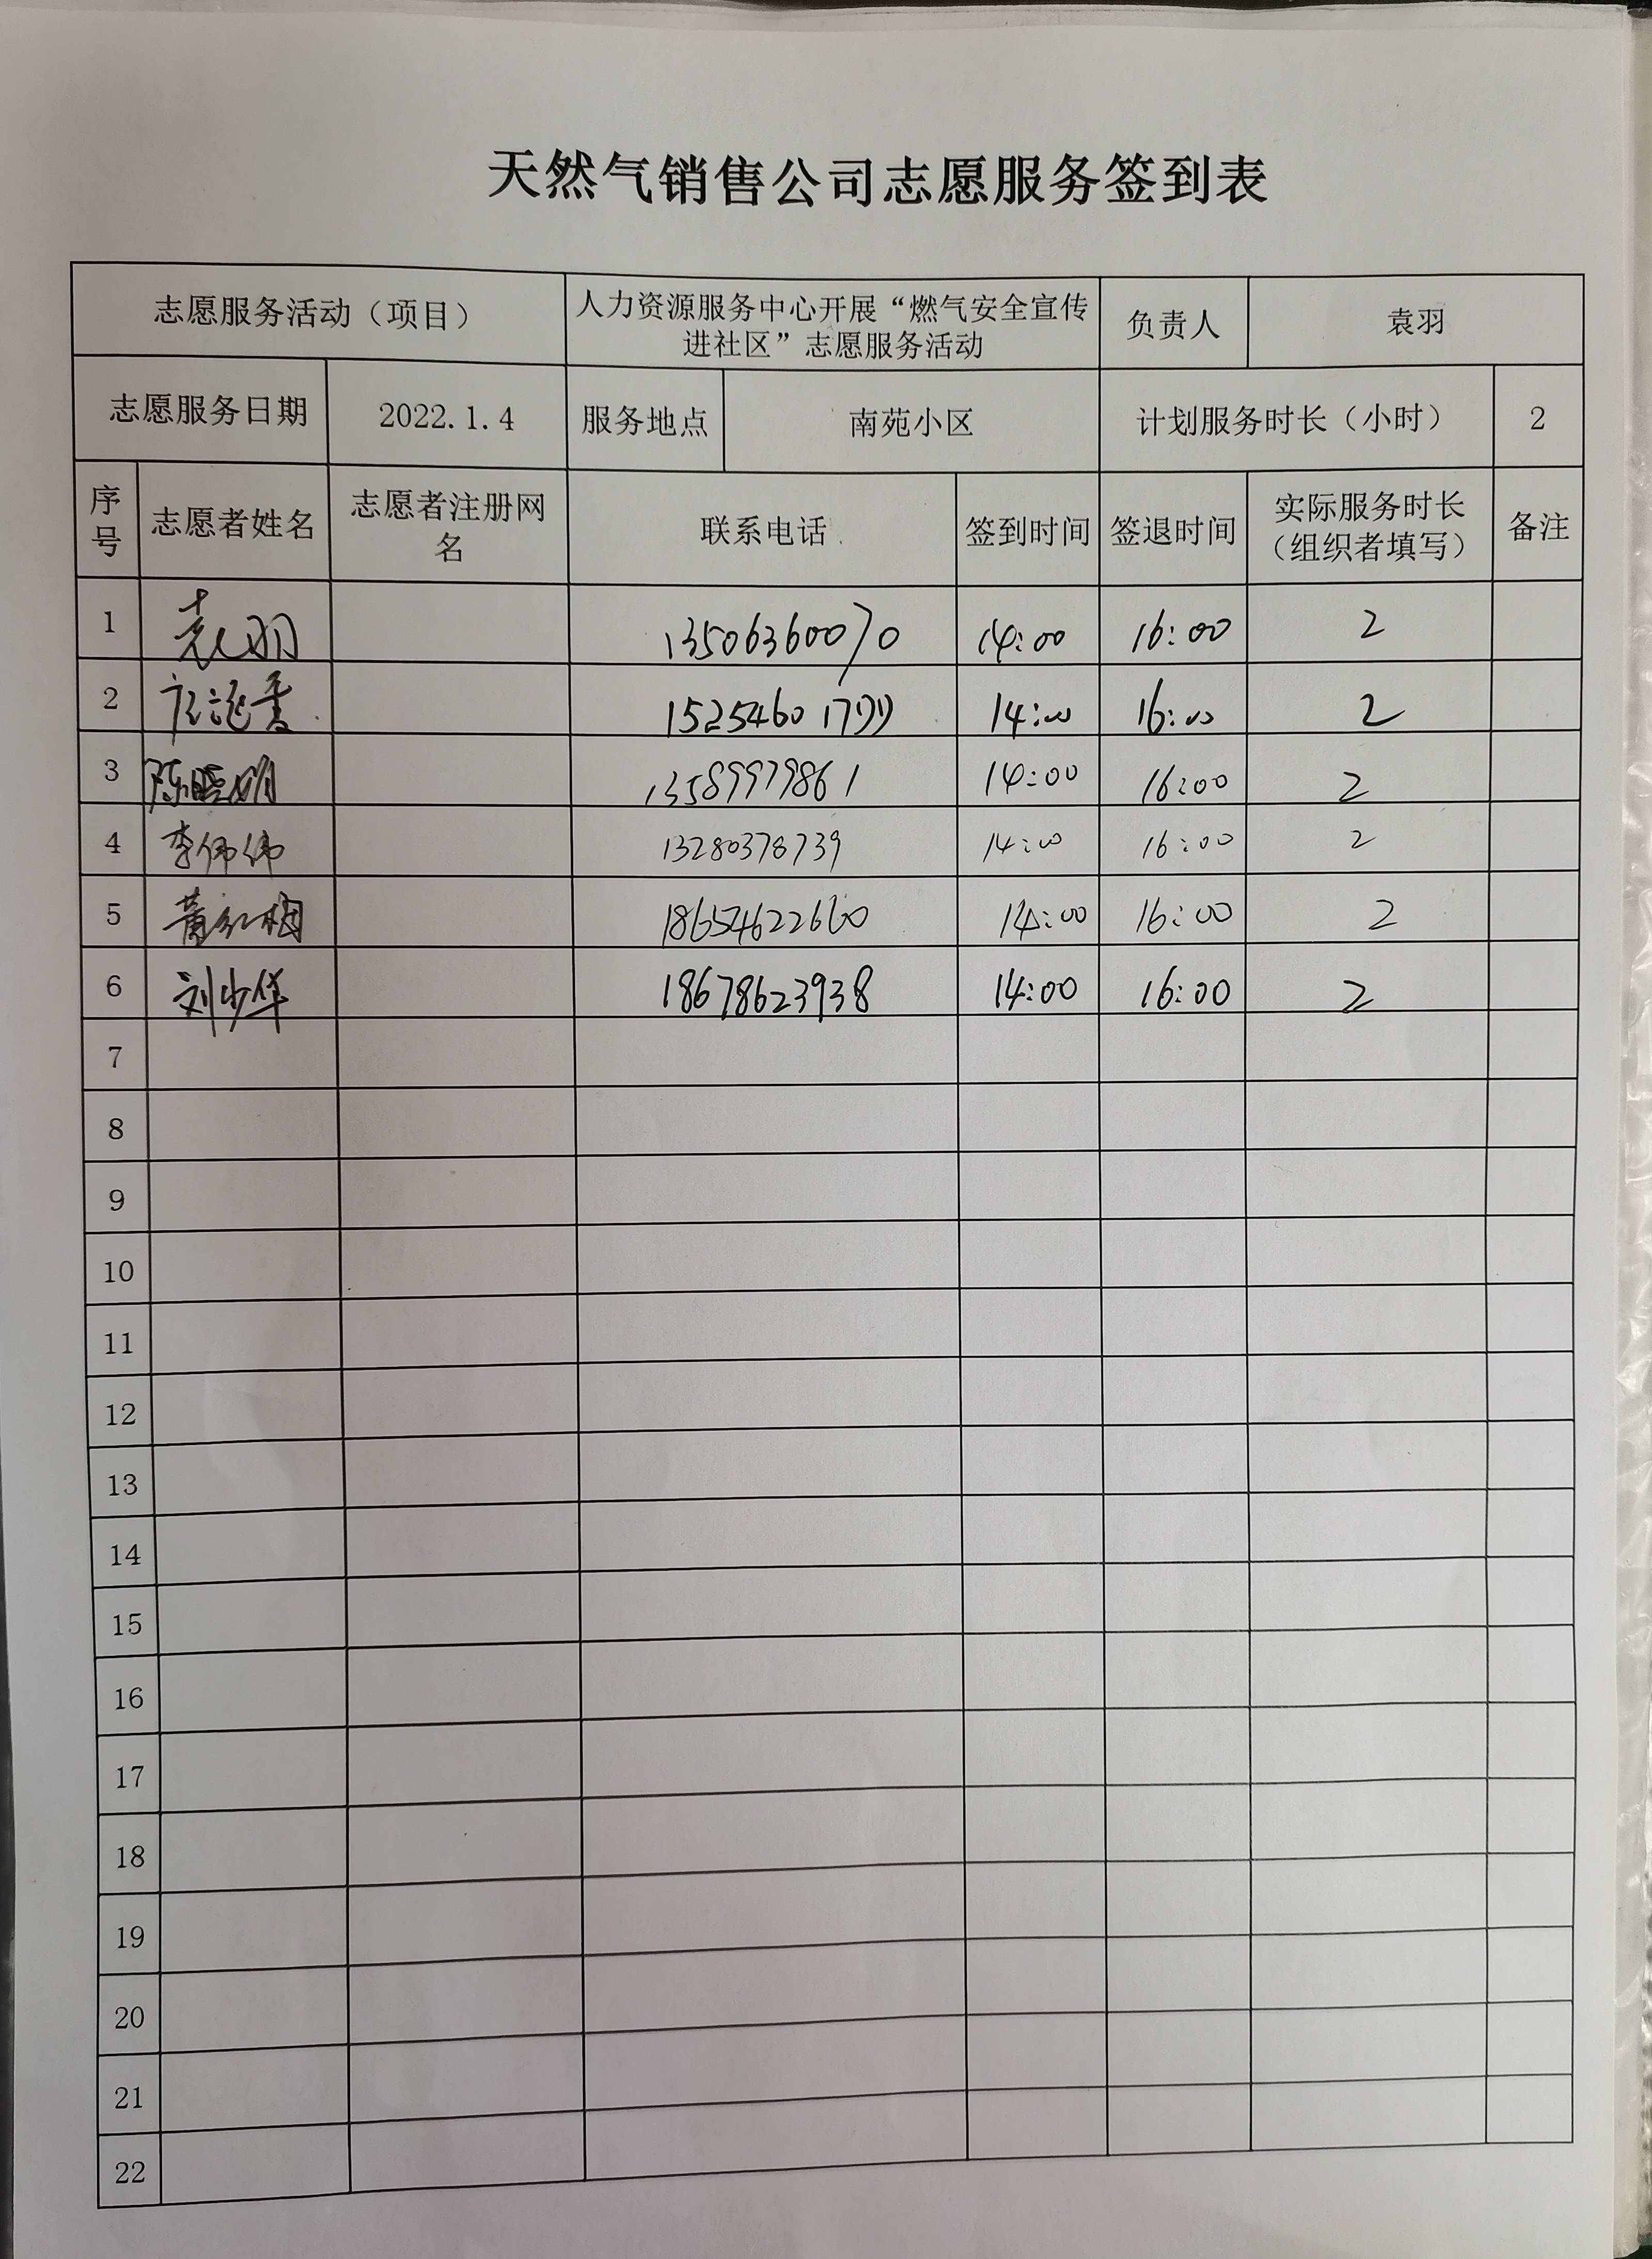 天然气销售公司志愿服务签到表
志愿服务活动（项目） 人力资源服务中心开展“燃气安全宣传 负责人 袁羽
进社区”志愿服务活动
志愿服务日期 2022.1.4 服务地点 南苑小区 计划服务时长（小时） 2
序 志愿者姓名 志愿者注册网 联系电话 签到时间 签退时间 实际服务时长 备注
号 名 （组织者填写）
1 袁羽 13506360070 14:00 16:00 2
2 14:00 16:00 2
3 13589979861 14:00 16:00 2
4 李伟伟 13280378739 14:00 16:00 2
5 18654622660 14:00 16:00 2
6 刘少华 18678623938 14:00 16:00 2
7
8
9
10
11
12
13
14
15
16
17
18
19
20
21
22